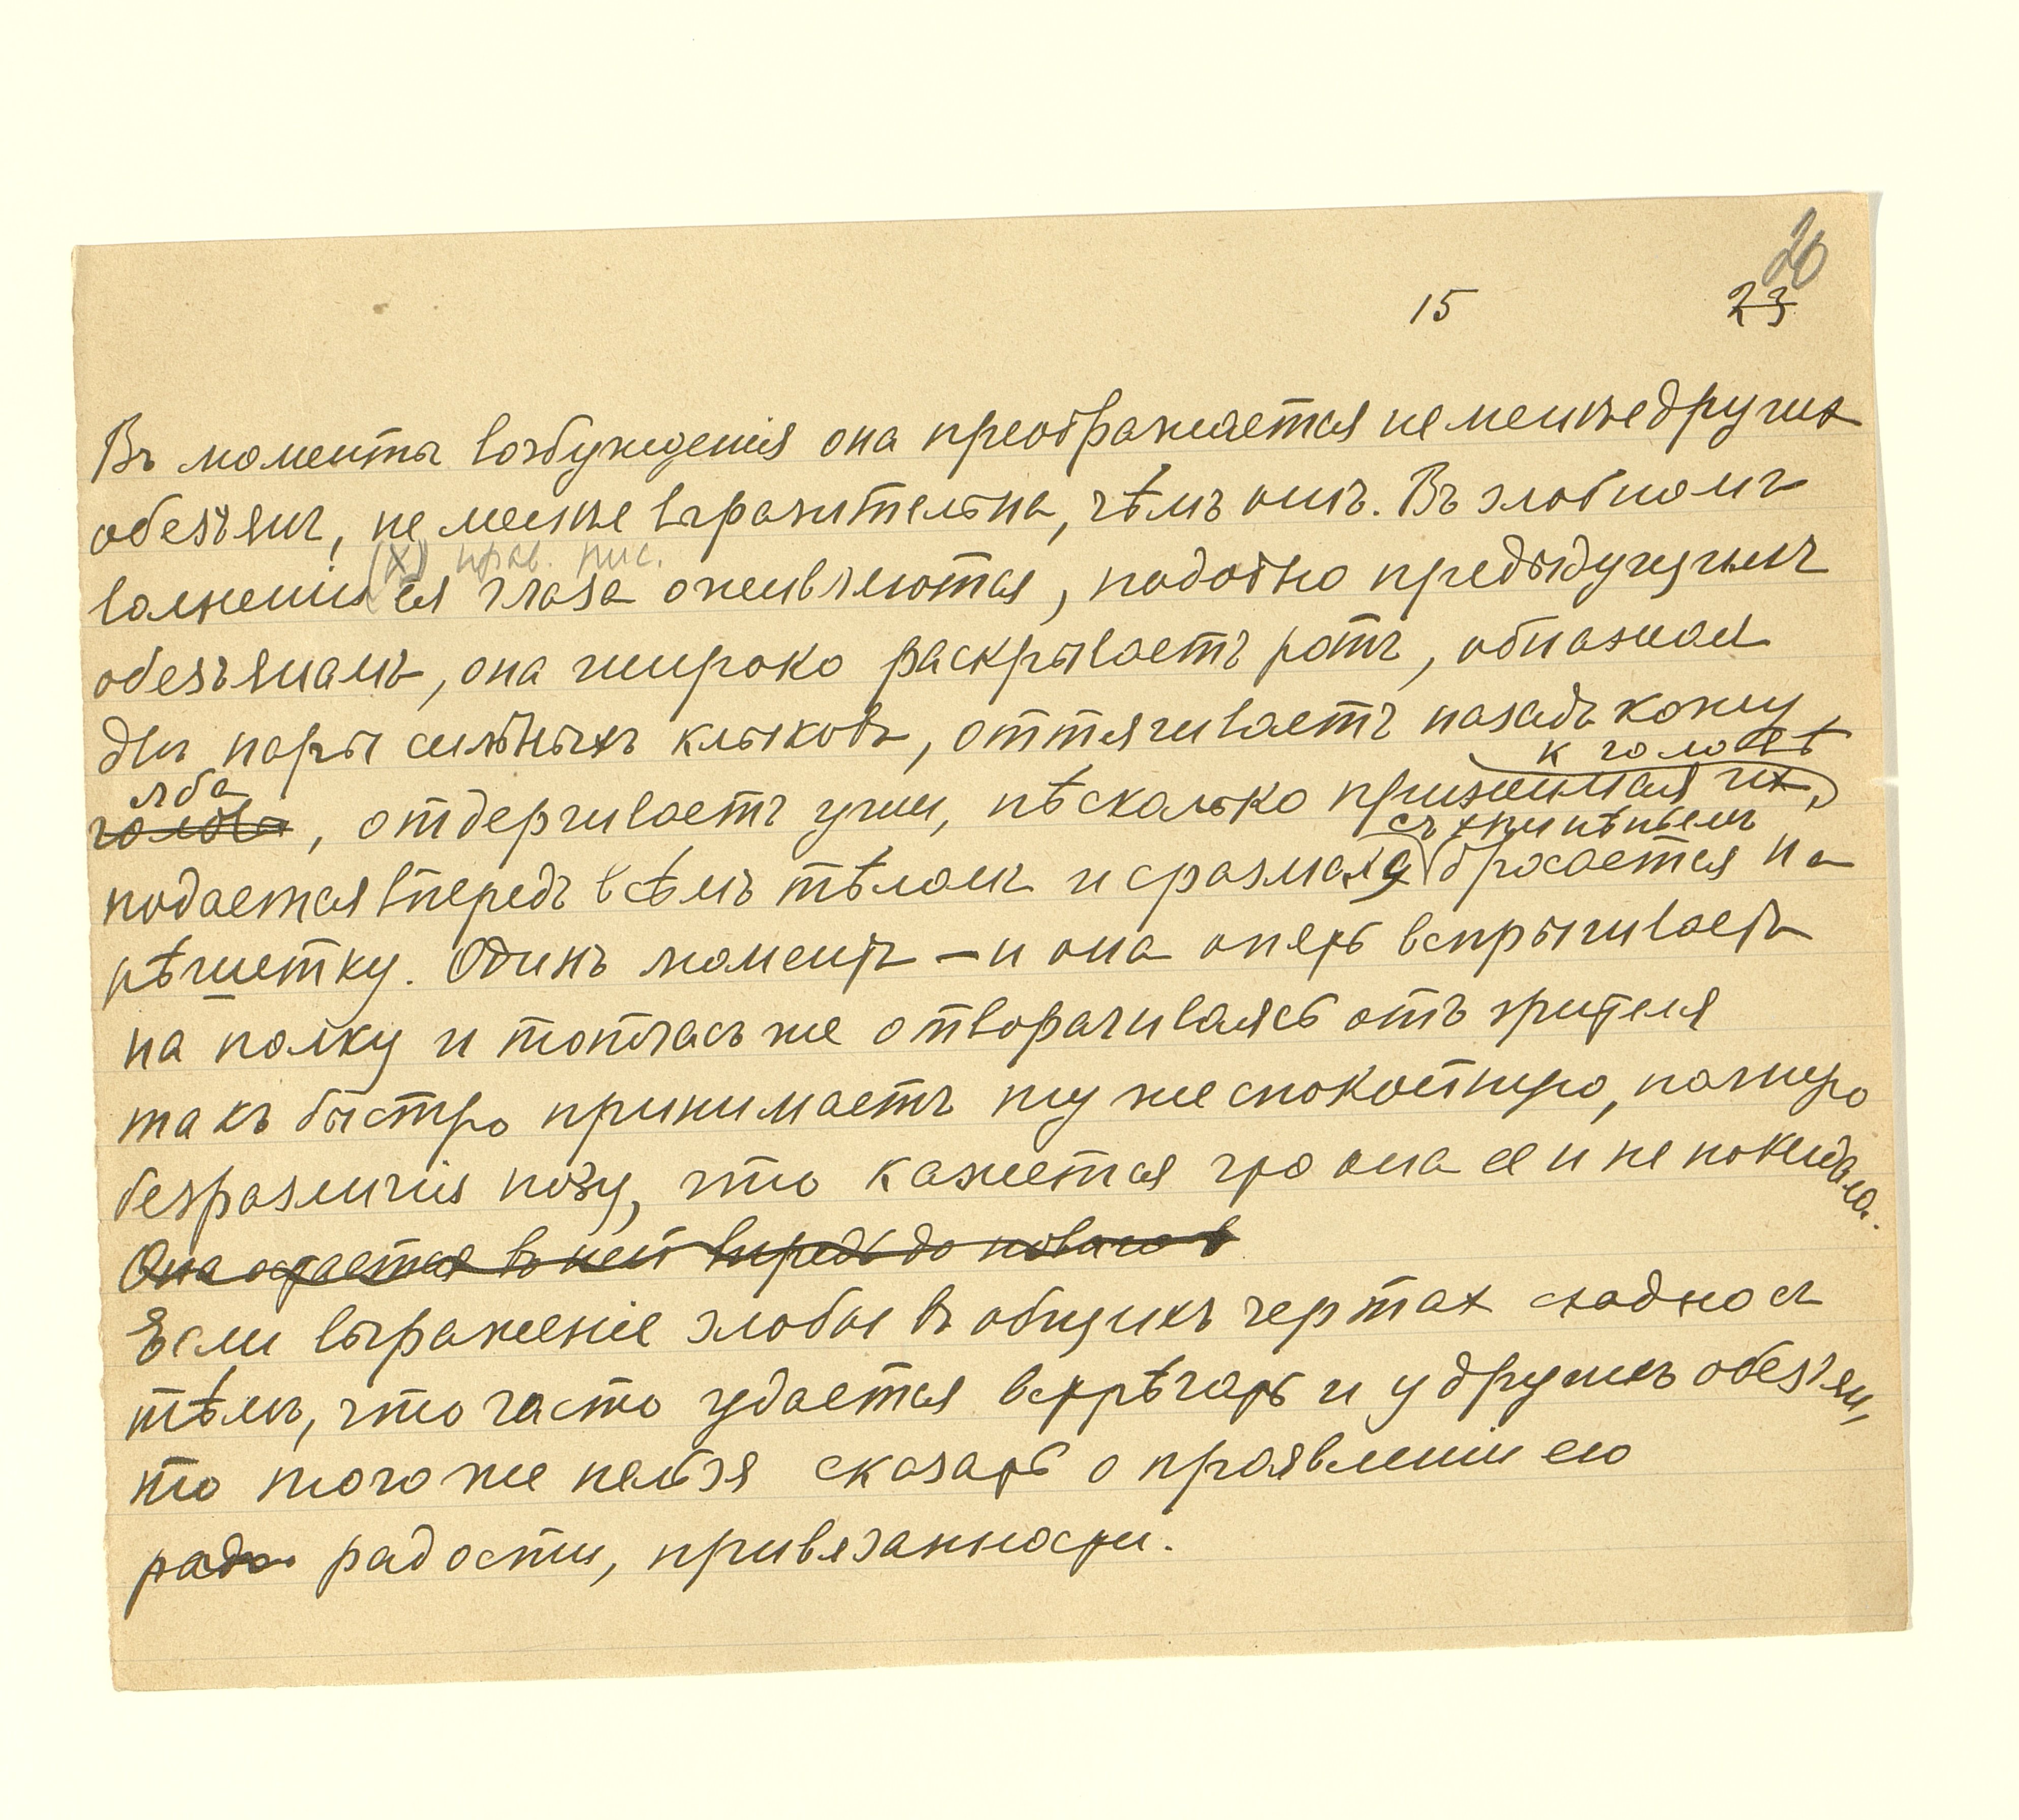 20
15 23
Въ моменты возбужденія она преображается не менѣе других
обезъянъ, не менѣе выразительна, чѣмъ онѣ. Въ злобномъ
(х) прав. рис.
волненіи ея глаза оживляются, подобно предыдущимъ
обезъянамъ, она широко раскрываетъ ротъ, обнажая
двѣ пары сильныхъ клыковъ, оттягиваетъ назадъ кожу
к головѣ
лба
головы, отдергиваетъ уши, нѣсколько прижимая их,
съ хрипѣньемъ
подается впередъ всѣмъ тѣломъ и с размаха бросается на
рѣшетку. Одинъ моментъ — и она опять вспрыгиваетъ
на полку и тотчасъ же отворачиваясь отъ зрителя
такъ быстро принимаетъ ту же спокойную, полную
безразличія позу, что кажется что она ее и не покидала.
Она остается въ ней впредь до новаго в
Если выраженіе злобы въ общихъ чертах сходно съ
тѣмъ, что часто удается встрѣчать и у другихъ обезъян,
то того же нельзя сказать о проявленіи ею
радо радости, привязанности.